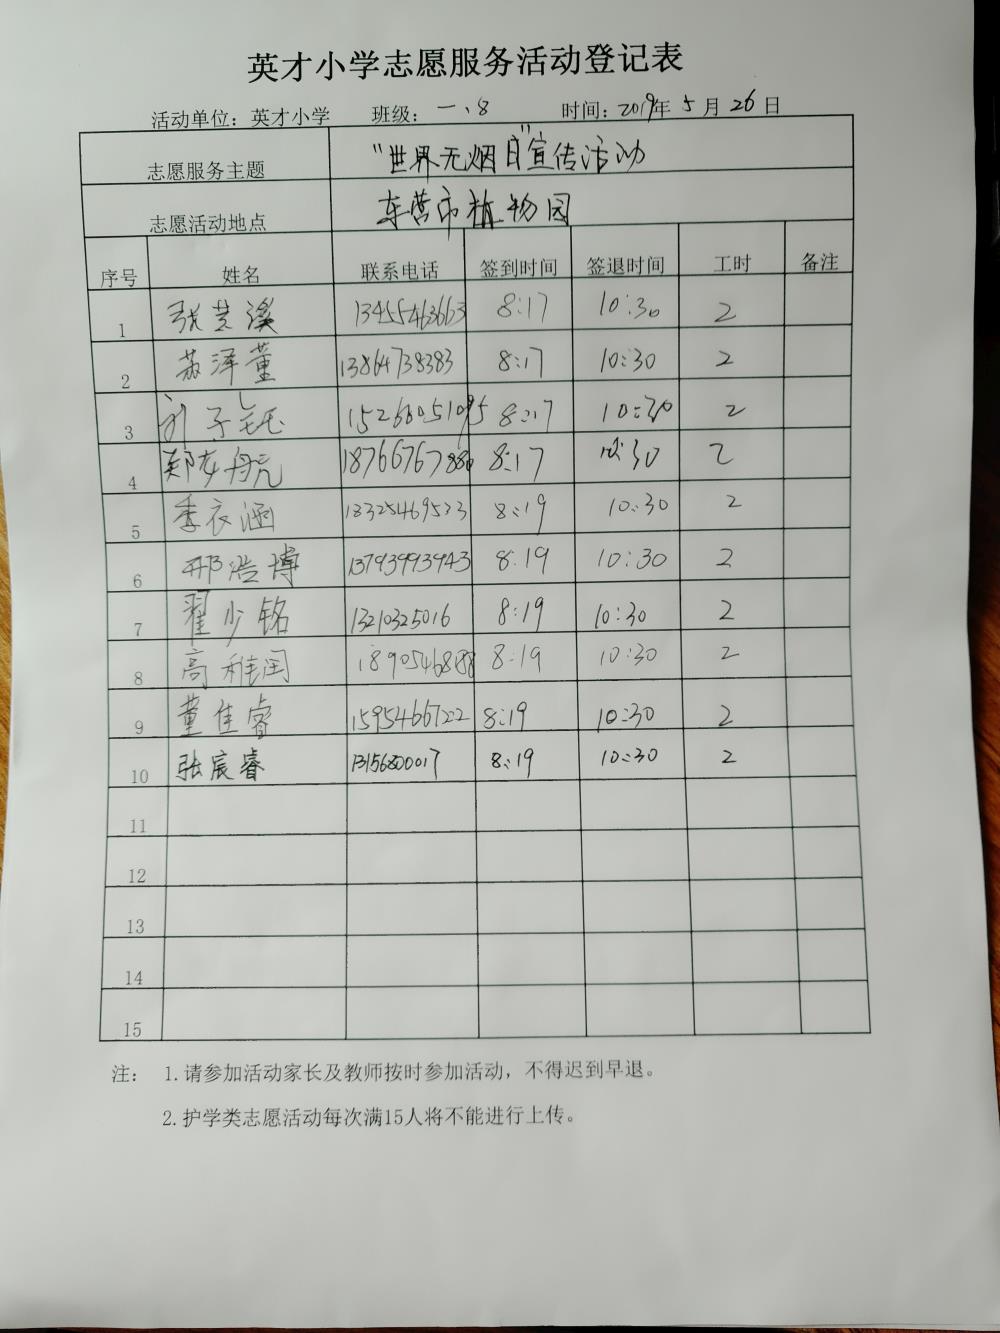 英才小学志愿服务活动登记表
活动单位：英才小学 班级：一、8 时间：2019年5月26日
志愿服务主题 “世界无烟日”宣传活动
志愿活动地点 东营市植物园
序号 姓名 联系电话 签到时间 签退时间 工时 备注
1 张芸溪 13455463663 8:17 10:30 2
2 苏泽董 13864738383 8:17 10:30 2
3 子钰 15266051095 8:17 10:30 2
4 郑 丹元 18766767886 8:17 10:30 2
5 季衣涵 18325469523 8:19 10:30 2
6 邢浩博 13793993943 8:19 10:30 2
7 翟少铭 13210325016 8:19 10:30 2
8 高 8:19 10:30 2
9 董佳睿 15954667222 8:19 10:30 2
10 张宸睿 13156800017 8:19 10:30 2
11
12
13
14
15
注： 1.请参加活动家长及教师按时参加活动，不得迟到早退。
2.护学类志愿活动每次满15人将不能进行上传。